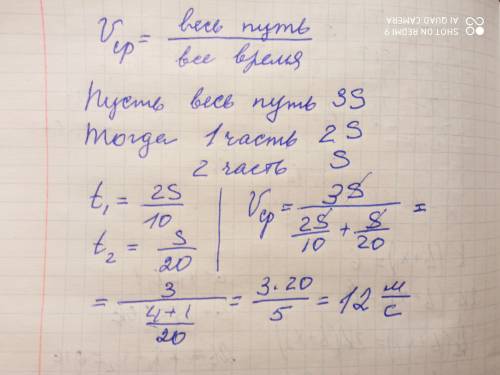 SHOT ON REDMI 9
AI QUAD CAMERA
Vср = весь путь / все время
Пусть весь путь 3S
Тогда 1 часть 2S
2 часть S
t₁ = 2S/10
t₂ = S/20
Vср = 3S / (2S/10 + S/20) =
= 3 / ((4+1)/20) = 3·20/5 = 12 м/с